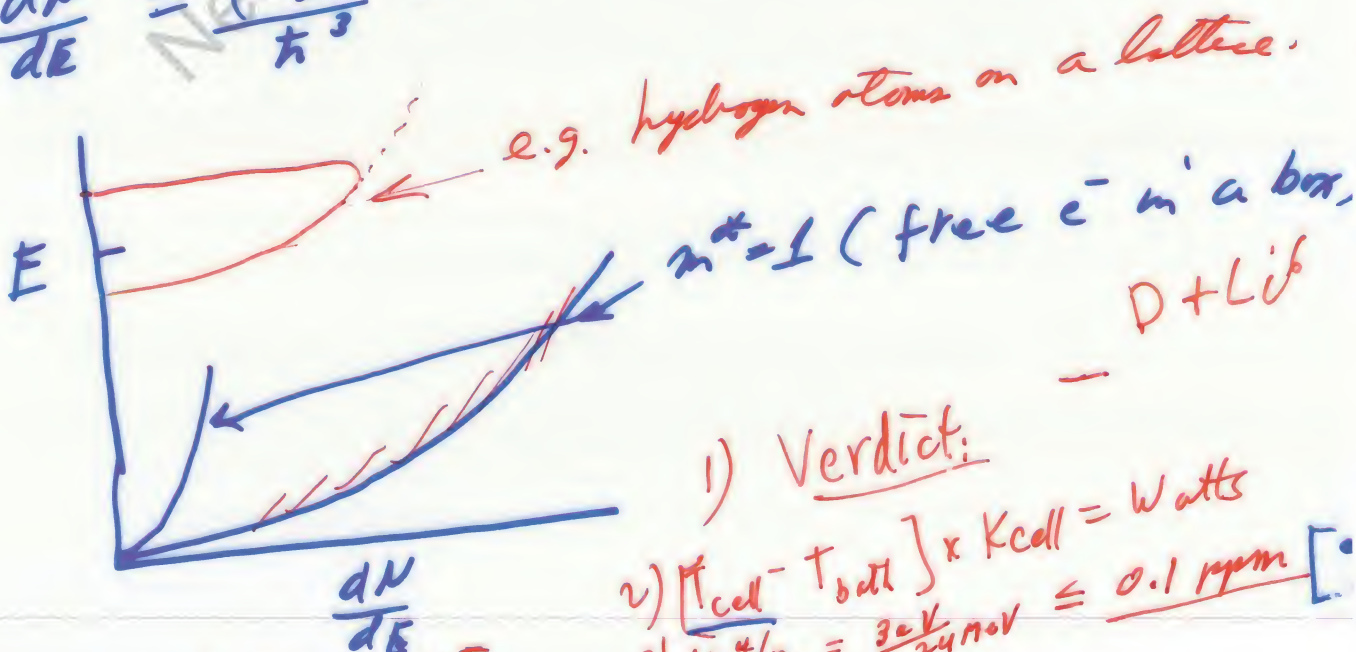 dN/dE = ħ³
e.g. hydrogen atoms on a lattice.
E
m*=1 (free e⁻ in a box,
D + Li6
1) Verdict:
2) [Tcell - Tbath] x Kcell = Watts
= 3eV/24MeV ≤ 0.1 ppm [
dN/dE